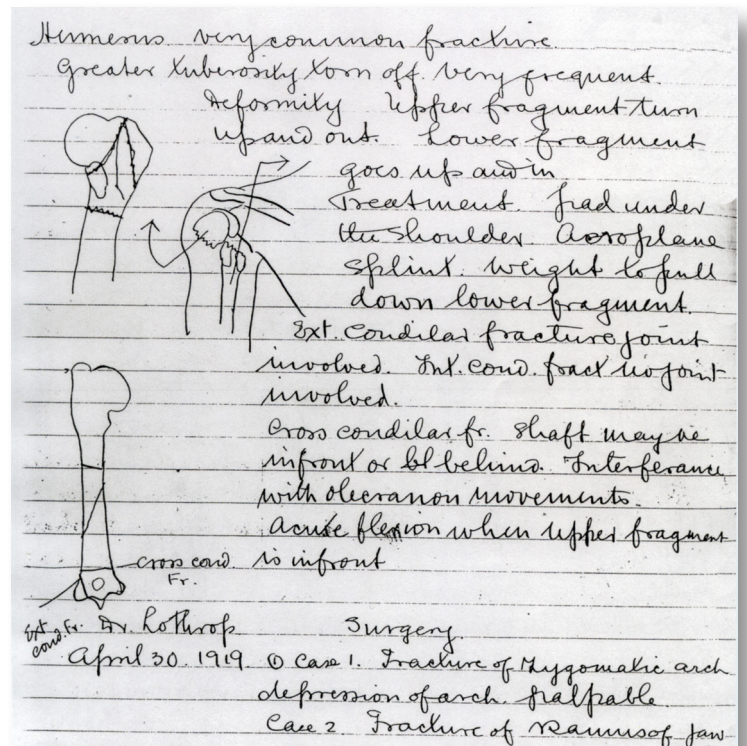 Humerus very common fracture.
Greater tuberosity torn off. very frequent.
Deformity Upper fragment turn
up and out. Lower fragment
goes up and in
Treatment. pad under
the shoulder. Aeroplane
splint. weight to pull
down lower fragment.
Ext. Condilar fracture joint
involved. Int. cond. fract no joint
involved.
Cross condilar fr. shaft may be
infront or bl behind. Interferance
with olecranon movements.
Acute flexion when upper fragment
is infront
cross cond.
Fr.
Ext
cond. Fr.
Dr. Lothrop Surgery.
April 30. 1919 ① Case 1. Fracture of Zygomatic arch
depression of arch palpable.
Case 2 Fracture of Ramus of jaw